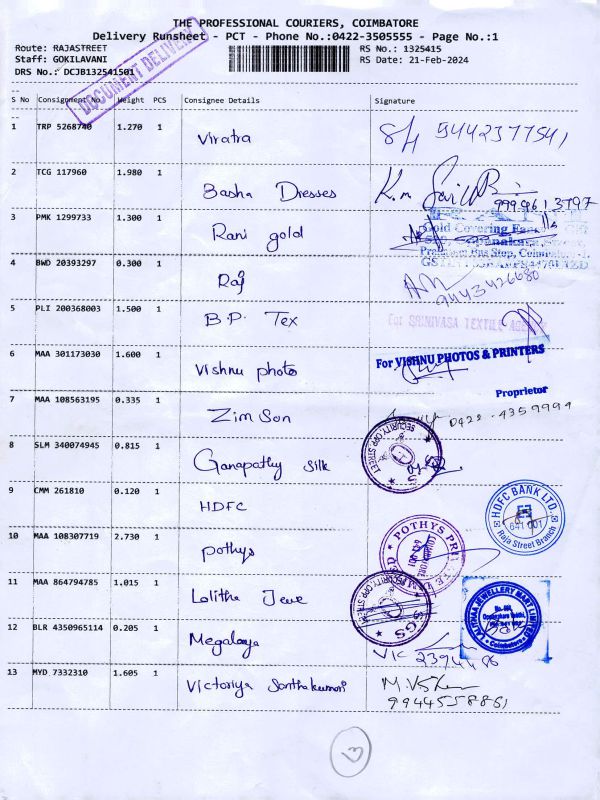 THE PROFESSIONAL COURIERS, COIMBATORE
Delivery Runsheet - PCT - Phone No.:0422-3505555 - Page No.:1
Route: RAJASTREET RS No.: 1325415
Staff: GOKILAVANI RS Date: 21-Feb-2024
DRS No.: DCJB132541501
DOCUMENT DELIVERY
S No Consignment No. Weight PCS Consignee Details Signature
1 TRP 5268740 1.270 1 Viratra 9442377541
2 TCG 117960 1.980 1 Basha Dresses
3 PMK 1299733 1.300 1 Rani gold
Gold Covering
4 BWD 20393297 0.300 1 Raj 9443426680
5 PLI 200368003 1.500 1 B.P. Tex
For SRINIVASA TEXTILE
6 MAA 301173030 1.600 1 Vishnu photo For VISHNU PHOTOS & PRINTERS
Proprietor
7 MAA 108563195 0.335 1 Zimson 0422-4359994
8 SLM 340074945 0.815 1 Ganapathy silk
SECURITY OPP STREET
9 CMM 261810 0.120 1 HDFC
HDFC BANK LTD.
641 001
Raja Street Branch
10 MAA 108307719 2.730 1 pothys
POTHYS
11 MAA 864794785 1.015 1 Lalitha Jewe
SECURITY OPP STREET
SGS
LALITHAA JEWELLERY MART LIMITED
Coimbatore
12 BLR 4350965114 0.205 1 Megalaya
VIC 2394486
13 MYD 7332310 1.605 1 Victoriya Santhakumari
9944558861